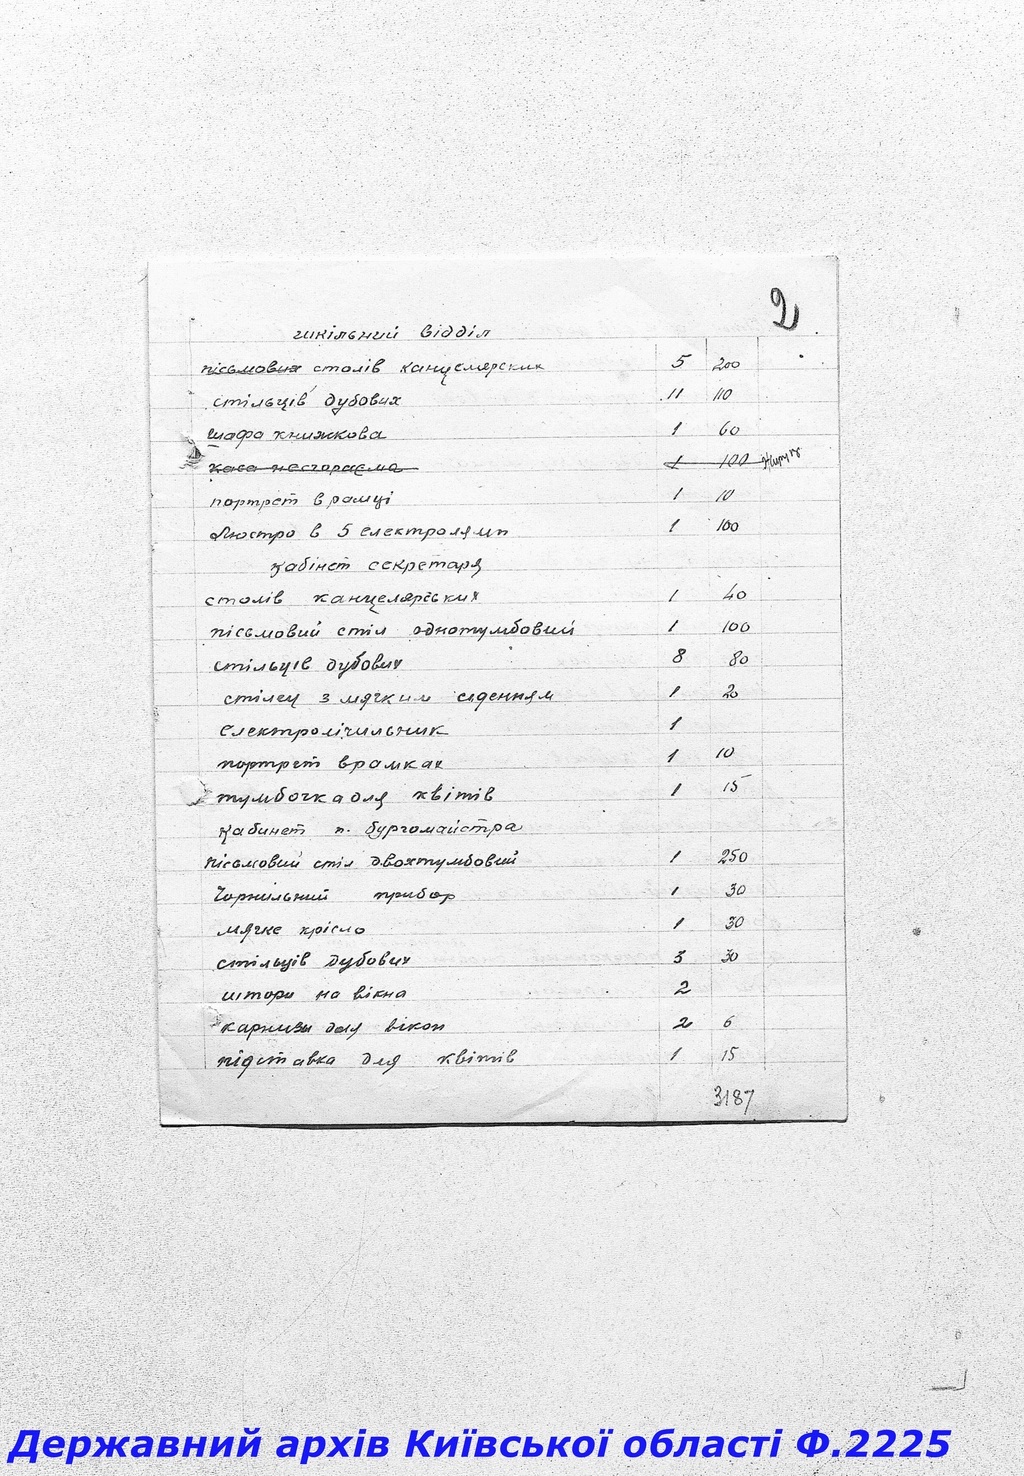 2
шкільний відділ
пісьмових столів канцелярских 5 200
стільців дубових 11 110
шафа книжкова 1 60
каса несгораєма 1 100
портрет в рамці 1 10
Люстра в 5 електролямп 1 100
кабінет секретаря
столів канцелярських 1 40
пісьмовий стіл однотумбовий 1 100
стільців дубових 8 80
стілец з мягким сиденням 1 20
електролічильник 1
портрет в рамках 1 10
тумбочка для квітів 1 15
кабинет п. бургомайстра
пісьмовий стіл двохтумбовий 1 250
Чорнильний прибор 1 30
мягке крісло 1 30
стільців дубових 3 30
штори на вікна 2
карнизи для вікон 2 6
підставка для квітів 1 15
3187
Державний архів Київської області Ф.2225